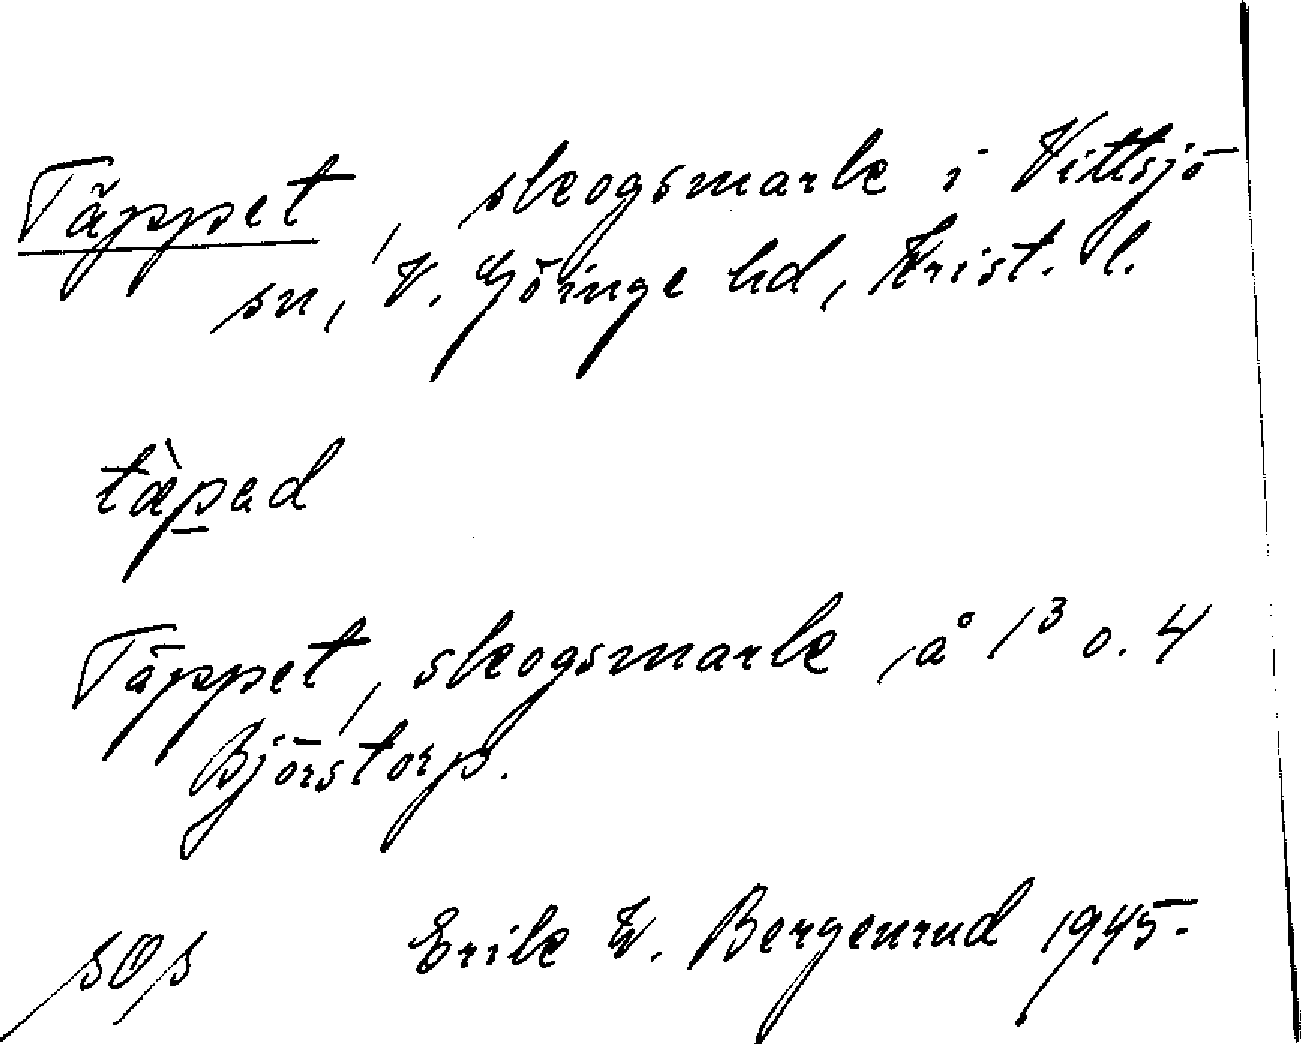 Täppet, skogsmark i Vittsjö
sn, V. Göinge hd, Krist. l.
tæ̀pad
Täppet, skogsmark å 1³ o. 4
Björstorp.
sOs Erik W. Bergenrud 1945.